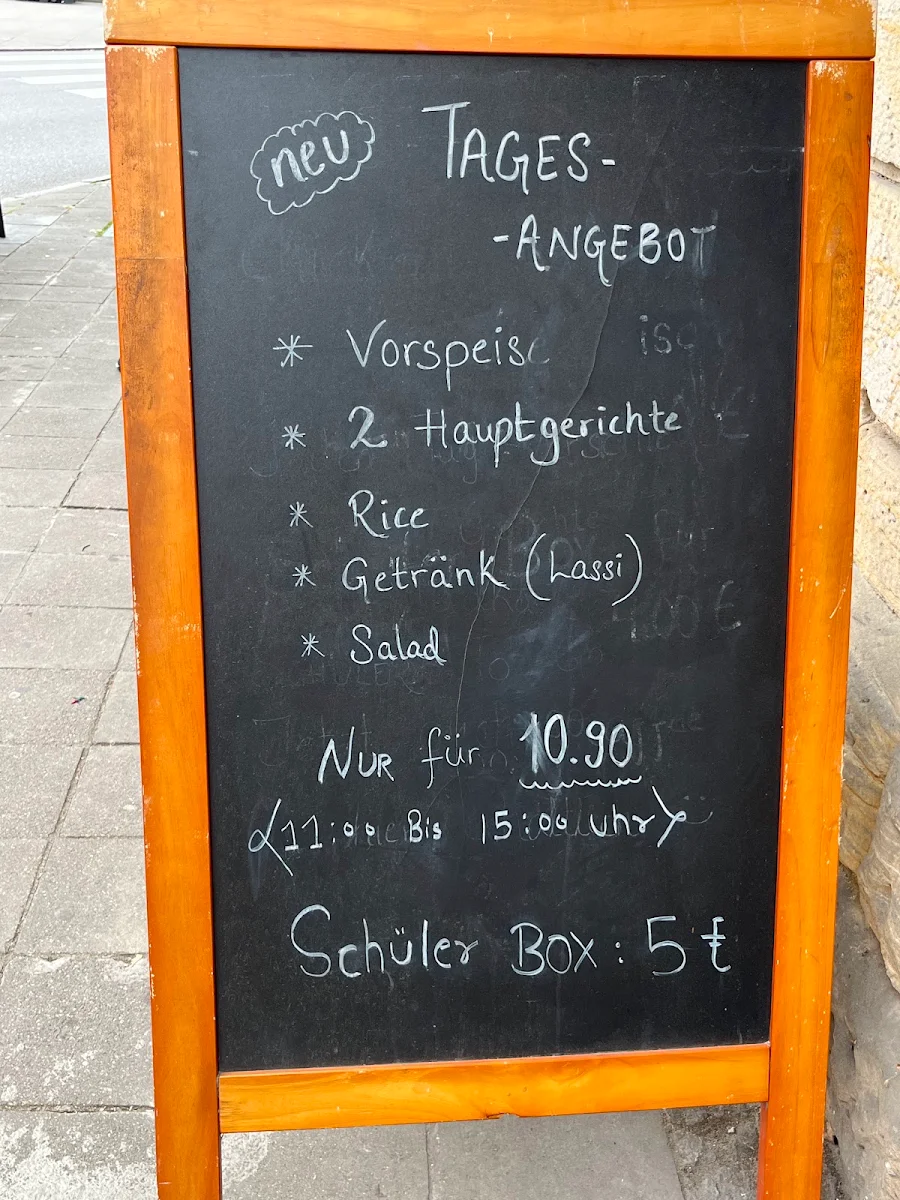 neu
TAGES-
-ANGEBOT
* Vorspeise
* 2 Hauptgerichte
* Rice
* Getränk (Lassi)
* Salad
NUR für 10.90
<11:00 Bis 15:00 uhr>
Schüler BOX : 5 €